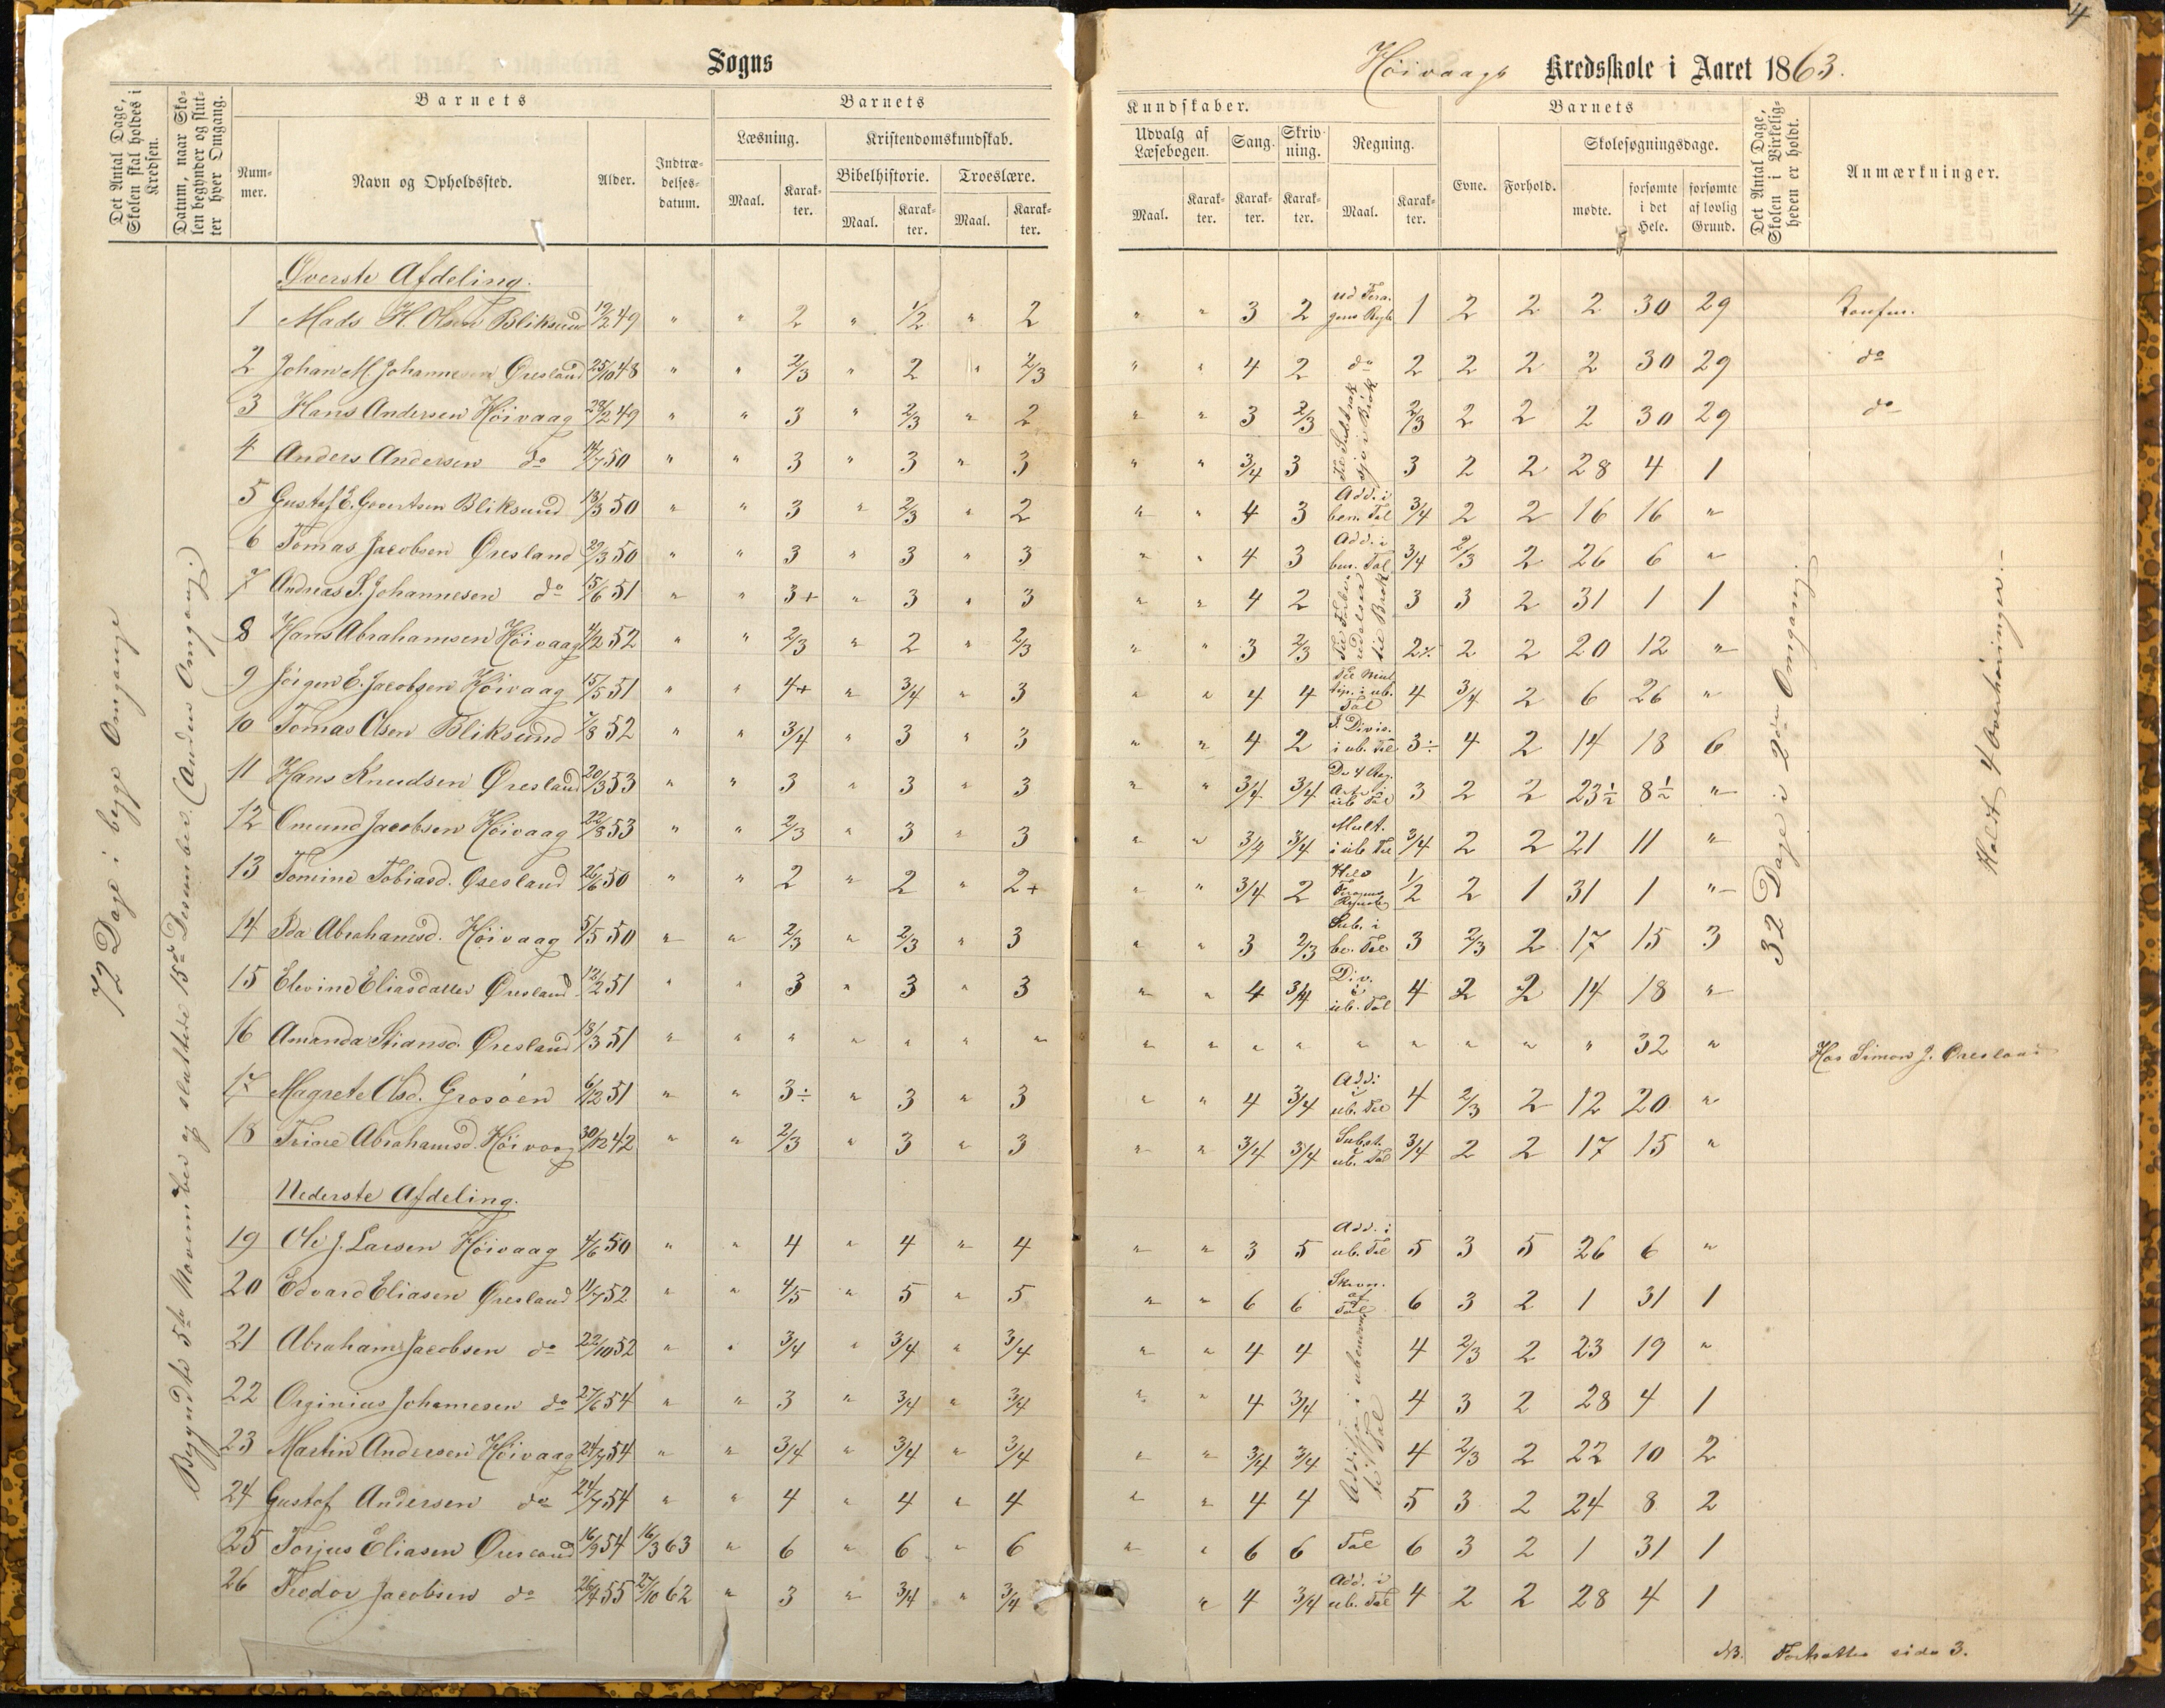 4
Sogns
Høivaags Kredsskole i Aaret 1863.
Det Antal Dage, Skolen skal holdes i Kredsen.
Datum, naar Skolen begynder og slutter hver Omgang.
Barnets
Nummer.
Navn og Opholdssted.
Alder.
Indtrædelsesdatum.
Barnets
Læsning.
Maal.
Karakter.
Kristendomskundskab.
Bibelhistorie.
Maal.
Karakter.
Troeslære.
Maal.
Karakter.
Kundskaber.
Udvalg af Læsebogen.
Maal.
Karakter.
Sang.
Karakter.
Skrivning.
Karakter.
Regning.
Maal.
Karakter.
Barnets
Evne.
Forhold.
Skolesøgningsdage.
mødte.
forsømte i det Hele.
forsømte af lovlig Grund.
Det Antal Dage, Skolen i Virkeligheden er holdt.
Anmærkninger.
72 Dage i begge Omgange
Begyndte 5te November og sluttede 15de Desember. (Anden Omgang.)
Øverste Afdeling.
1 Mads H. Olsen Bliksund 19/2 49 " " 2 " 1/2 " 2 " " 3 2 1 2 2 2 30 29 Konfm.
2 Johan M. Johannesen Øresland 25/10 48 " " 2/3 " 2 " 2/3 " " 4 2 do 2 2 2 2 30 29 do
3 Hans Andersen Høivaag 28/2 49 " " 3 " 2/3 " 2 " " 3 2/3 2/3 2 2 2 30 29 do
4 Anders Andersen do 14/7 50 " " 3 " 3 " 3 " " 3/4 3 3 2 2 28 4 1
5 Gustaf E. Geertsen Bliksund 13/3 50 " " 3 " 2/3 " 2 " " 4 3 Add. i ben. Tal 3/4 2 2 16 16 "
6 Tomas Jacobsen Øresland 29/3 50 " " 3 " 3 " 3 " " 4 3 Add. i ben. Tal 3/4 2/3 2 26 6 "
7 Andreas S. Johannesen do 15/6 51 " " 3+ " 3 " 3 " " 4 2 3 3 2 31 1 1
8 Hans Abrahamsen Høivaag 4/2 52 " " 2/3 " 2 " 2/3 " " 3 2/3 2÷ 2 2 20 12 "
9 Jörgen E. Jacobsen Höivaag 15/5 51 " " 4+ " 3/4 " 3 " " 4 4 Til Multip. i ub. Tal 4 3/4 2 6 26 "
10 Tomas Olsen Bliksund 7/8 52 " " 3/4 " 3 " 3 " " 4 2 T. Divis. i ub. Tal 3÷ 4 2 14 18 6
11 Hans Knudsen Øresland 20/3 53 " " 3 " 3 " 3 " " 3/4 3/4 De 4 Reg. Arter i ub Tal 3 2 2 23½ 8½ "
12 Omund Jacobsen Høivaag 22/8 53 " " 2/3 " 3 " 3 " " 3/4 3/4 Mult. i ub. Tal 3/4 2 2 21 11 "
13 Tomine Tobiasd. Øresland 26/6 50 " " 2 " 2 " 2+ " " 3/4 2 1/2 2 1 31 1 "
14 Ida Abrahamsd. Høivaag 5/5 50 " " 2/3 " 2/3 " 3 " " 3 2/3 Sub. i be. Tal 3 2/3 2 17 15 3
15 Elevine Eliasdatter Øresland 12/2 51 " " 3 " 3 " 3 " " 4 3/4 Div. i ub. Tal 4 2 2 14 18 "
16 Amanda Stiansd. Øresland 18/3 51 " " " " " " " " " " " " " " " " 32 " Hos Simon J. Øresland
17 Magrete Olsd. Grosöen 6/2 51 " " 3÷ " 3 " 3 " " 4 3/4 Add: i ub. Tal 4 2/3 2 12 20 "
18 Trine Abrahamsd. Höivaag 30/12 42 " " 2/3 " 3 " 3 " " 3/4 3/4 Subst. i ub. Tal 3/4 2 2 17 15 "
Nederste Afdeling.
19 Ole J. Larsen Høivaag 4/6 50 " " 4 " 4 " 4 " " 3 5 Add. i ub. Tal 5 3 5 26 6 "
20 Edvard Eliasen Øresland 11/7 52 " " 4/5 " 5 " 5 " " 6 6 Skrivn. af Tal 6 3 2 1 31 1
21 Abraham Jacobsen do 22/10 52 " " 3/4 " 3/4 " 3/4 " " 4 4 4 2/3 2 23 19 "
22 Orginius Johannesen do 27/6 54 " " 3 " 3/4 " 3/4 " " 4 3/4 4 3 2 28 4 1
23 Martin Andersen Höivaag 24/7 54 " " 3/4 " 3/4 " 3/4 " " 3/4 3/4 4 2/3 2 22 10 2
24 Gustaf Andersen do 24/7 54 " " 4 " 4 " 4 " " 4 4 5 3 2 24 8 2
25 Torjus Eliasen Øresland 16/9 54 16/3 63 " 6 " 6 " 6 " " 6 6 Tal 6 3 2 1 31 1
26 Teodor Jacobsen do 26/4 55 27/10 62 " 3 " 3/4 " 3/4 " 4 3/4 Add. i ub. Tal 4 2 2 28 4 1
32 Dage i 2den Omgang.
Holdt 4 Overhöringer.
NB. Fortsættes side 3.